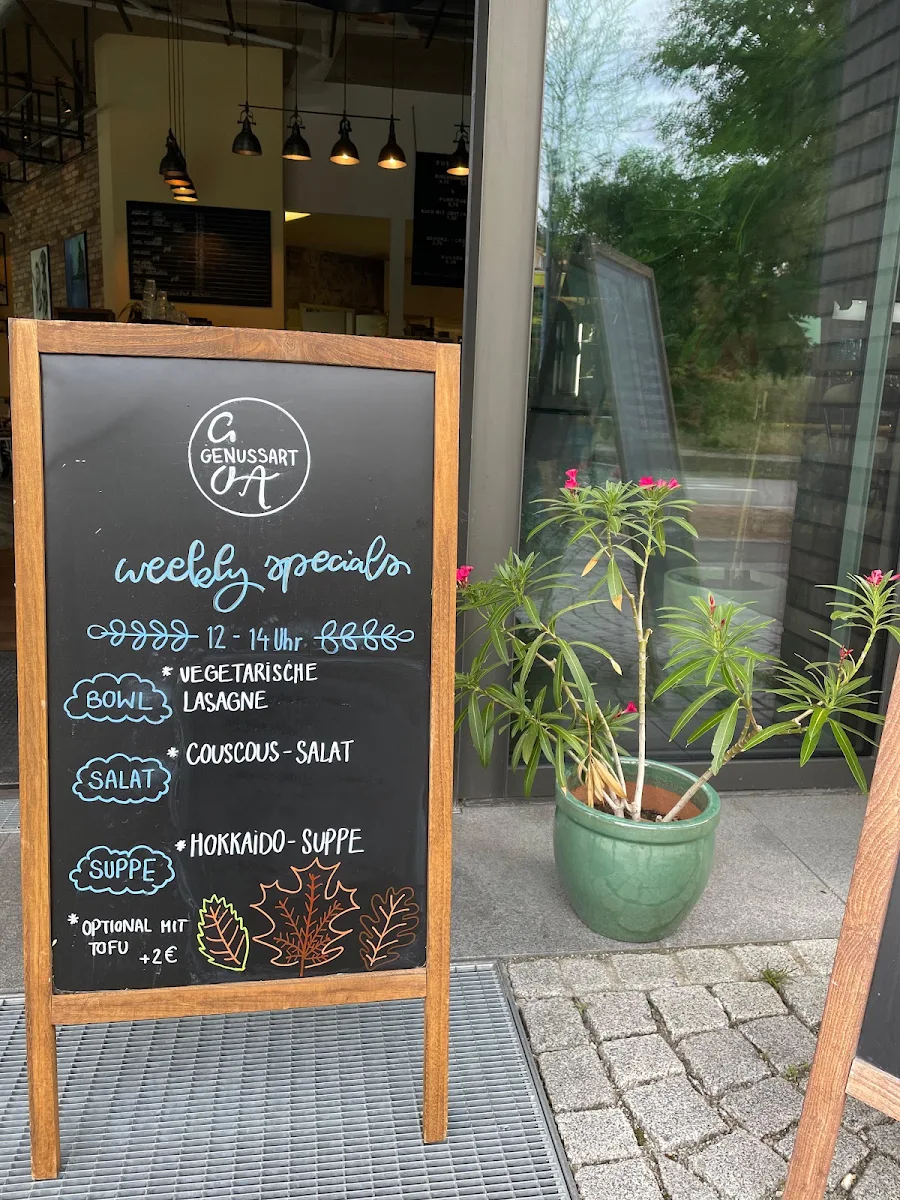 G
GENUSSART
A
weekly specials
12 - 14 Uhr
* VEGETARISCHE
BOWL LASAGNE
* COUSCOUS - SALAT
SALAT
* HOKKAIDO - SUPPE
SUPPE
* OPTIONAL MIT
TOFU +2€